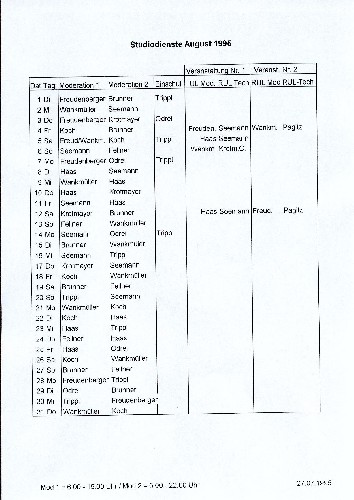 Studiodienste August 1996
Veranstaltung Nr. 1 Veranst. Nr. 2
Dat Tag Moderation 1 Moderation 2 Einschul ÜL Mod. RÜL Tech RÜL Mod RÜL-Tech
1 Di Freudenberger Brunner Trippl
2 Mi Wankmüller Seemann
3 Do Freudenberger Krotmayer Odrei
4 Fr Koch Brunner Freuden. Seemann Wankm. Pagitz
5 Sa Freud/Wankm. Koch Trippl Haas Seemann
6 So Seemann Fellner Wankm. Krotm.C.
7 Mo Freudenberger Odrei Trippl
8 Di Haas Seemann
9 Mi Wankmüller Haas
10 Do Haas Krotmayer
11 Fr Seemann Haas
12 Sa Krotmayer Brunner Haas Seemann Freud. Pagitz
13 So Fellner Wankmüller
14 Mo Seemann Odrei Trippl
15 Di Brunner Wankmüller
16 Mi Seemann Trippl
17 Do Krotmayer Seemann
18 Fr Koch Wankmüller
19 Sa Brunner Fellner
20 So Trippl Seemann
21 Mo Wankmüller Koch
22 Di Koch Haas
23 Mi Haas Trippl
24 Do Fellner Haas
25 Fr Haas Odrei
26 Sa Koch Wankmüller
27 So Brunner Fellner
28 Mo Freudenberger Trippl
29 Di Odrei Brunner
30 Mi Trippl Freudenberger
31 Do Wankmüller Koch
Mod 1 = 6.00 - 15.00 Uhr / Mod 2 = 22.00 Uhr